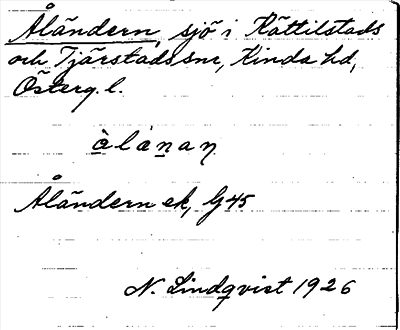 Åländern, sjö i Kättilstads
och Tjärstads snr, Kinda hd,
Österg. l.
àlánan
Åländern ek, G45
N. Lindqvist 1926